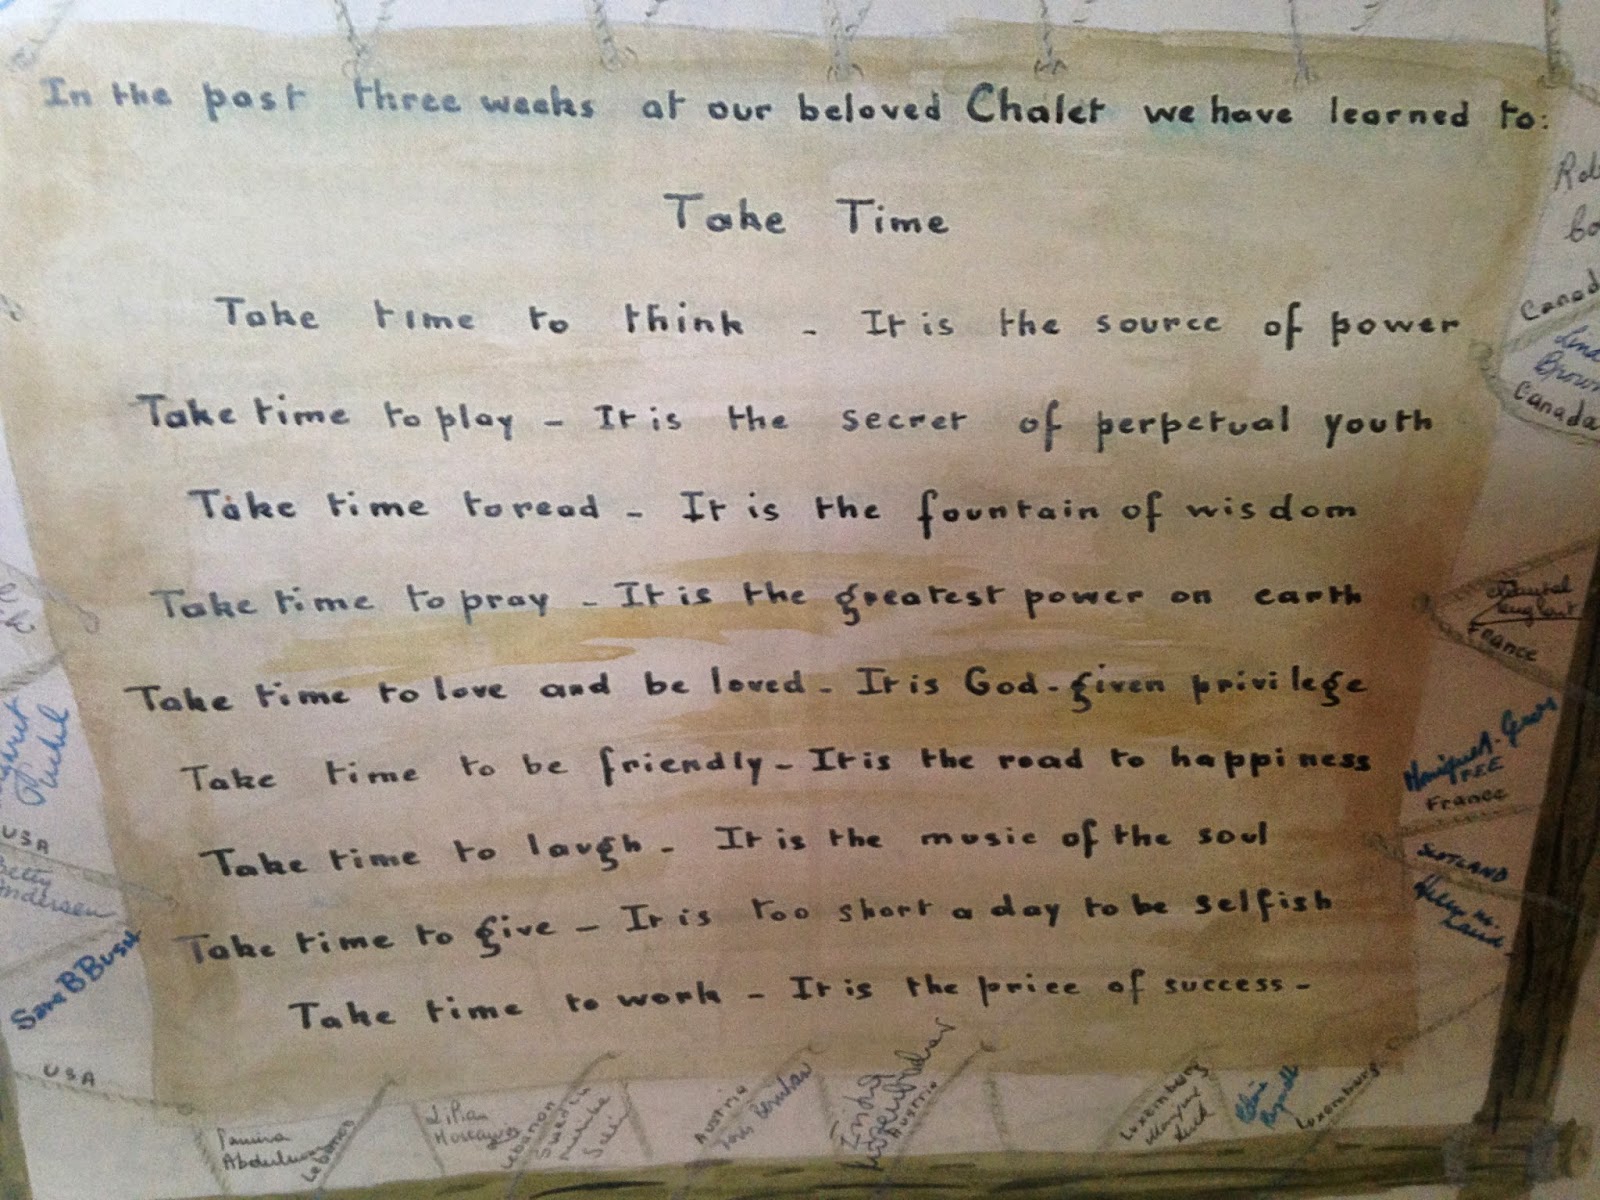 In the past three weeks at our beloved Chalet we have learned to:
Take Time
Take time to think - It is the source of power
Take time to play - It is the secret of perpetual youth
Take time to read - It is the fountain of wisdom
Take time to pray - It is the greatest power on earth
Take time to love and be loved - It is God-given privilege
Take time to be friendly - It is the road to happiness
Take time to laugh - It is the music of the soul
Take time to give - It is too short a day to be selfish
Take time to work - It is the price of success -
Canada
Brown
Canada
France
France
SCOTLAND
USA
Betty
Andersen
Sara B Bush
USA
Lebanon
Lebanon
Sweden
Austria
Austria
Luxemburg
Luxemburg